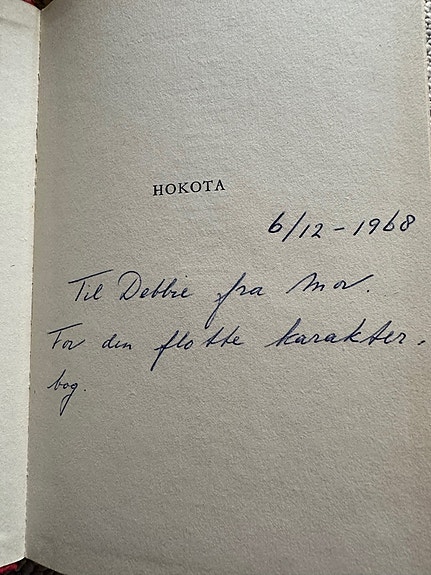 HOKOTA
6/12 - 1968
Til Debbie fra Mor.
For den flotte karakter-
bog.